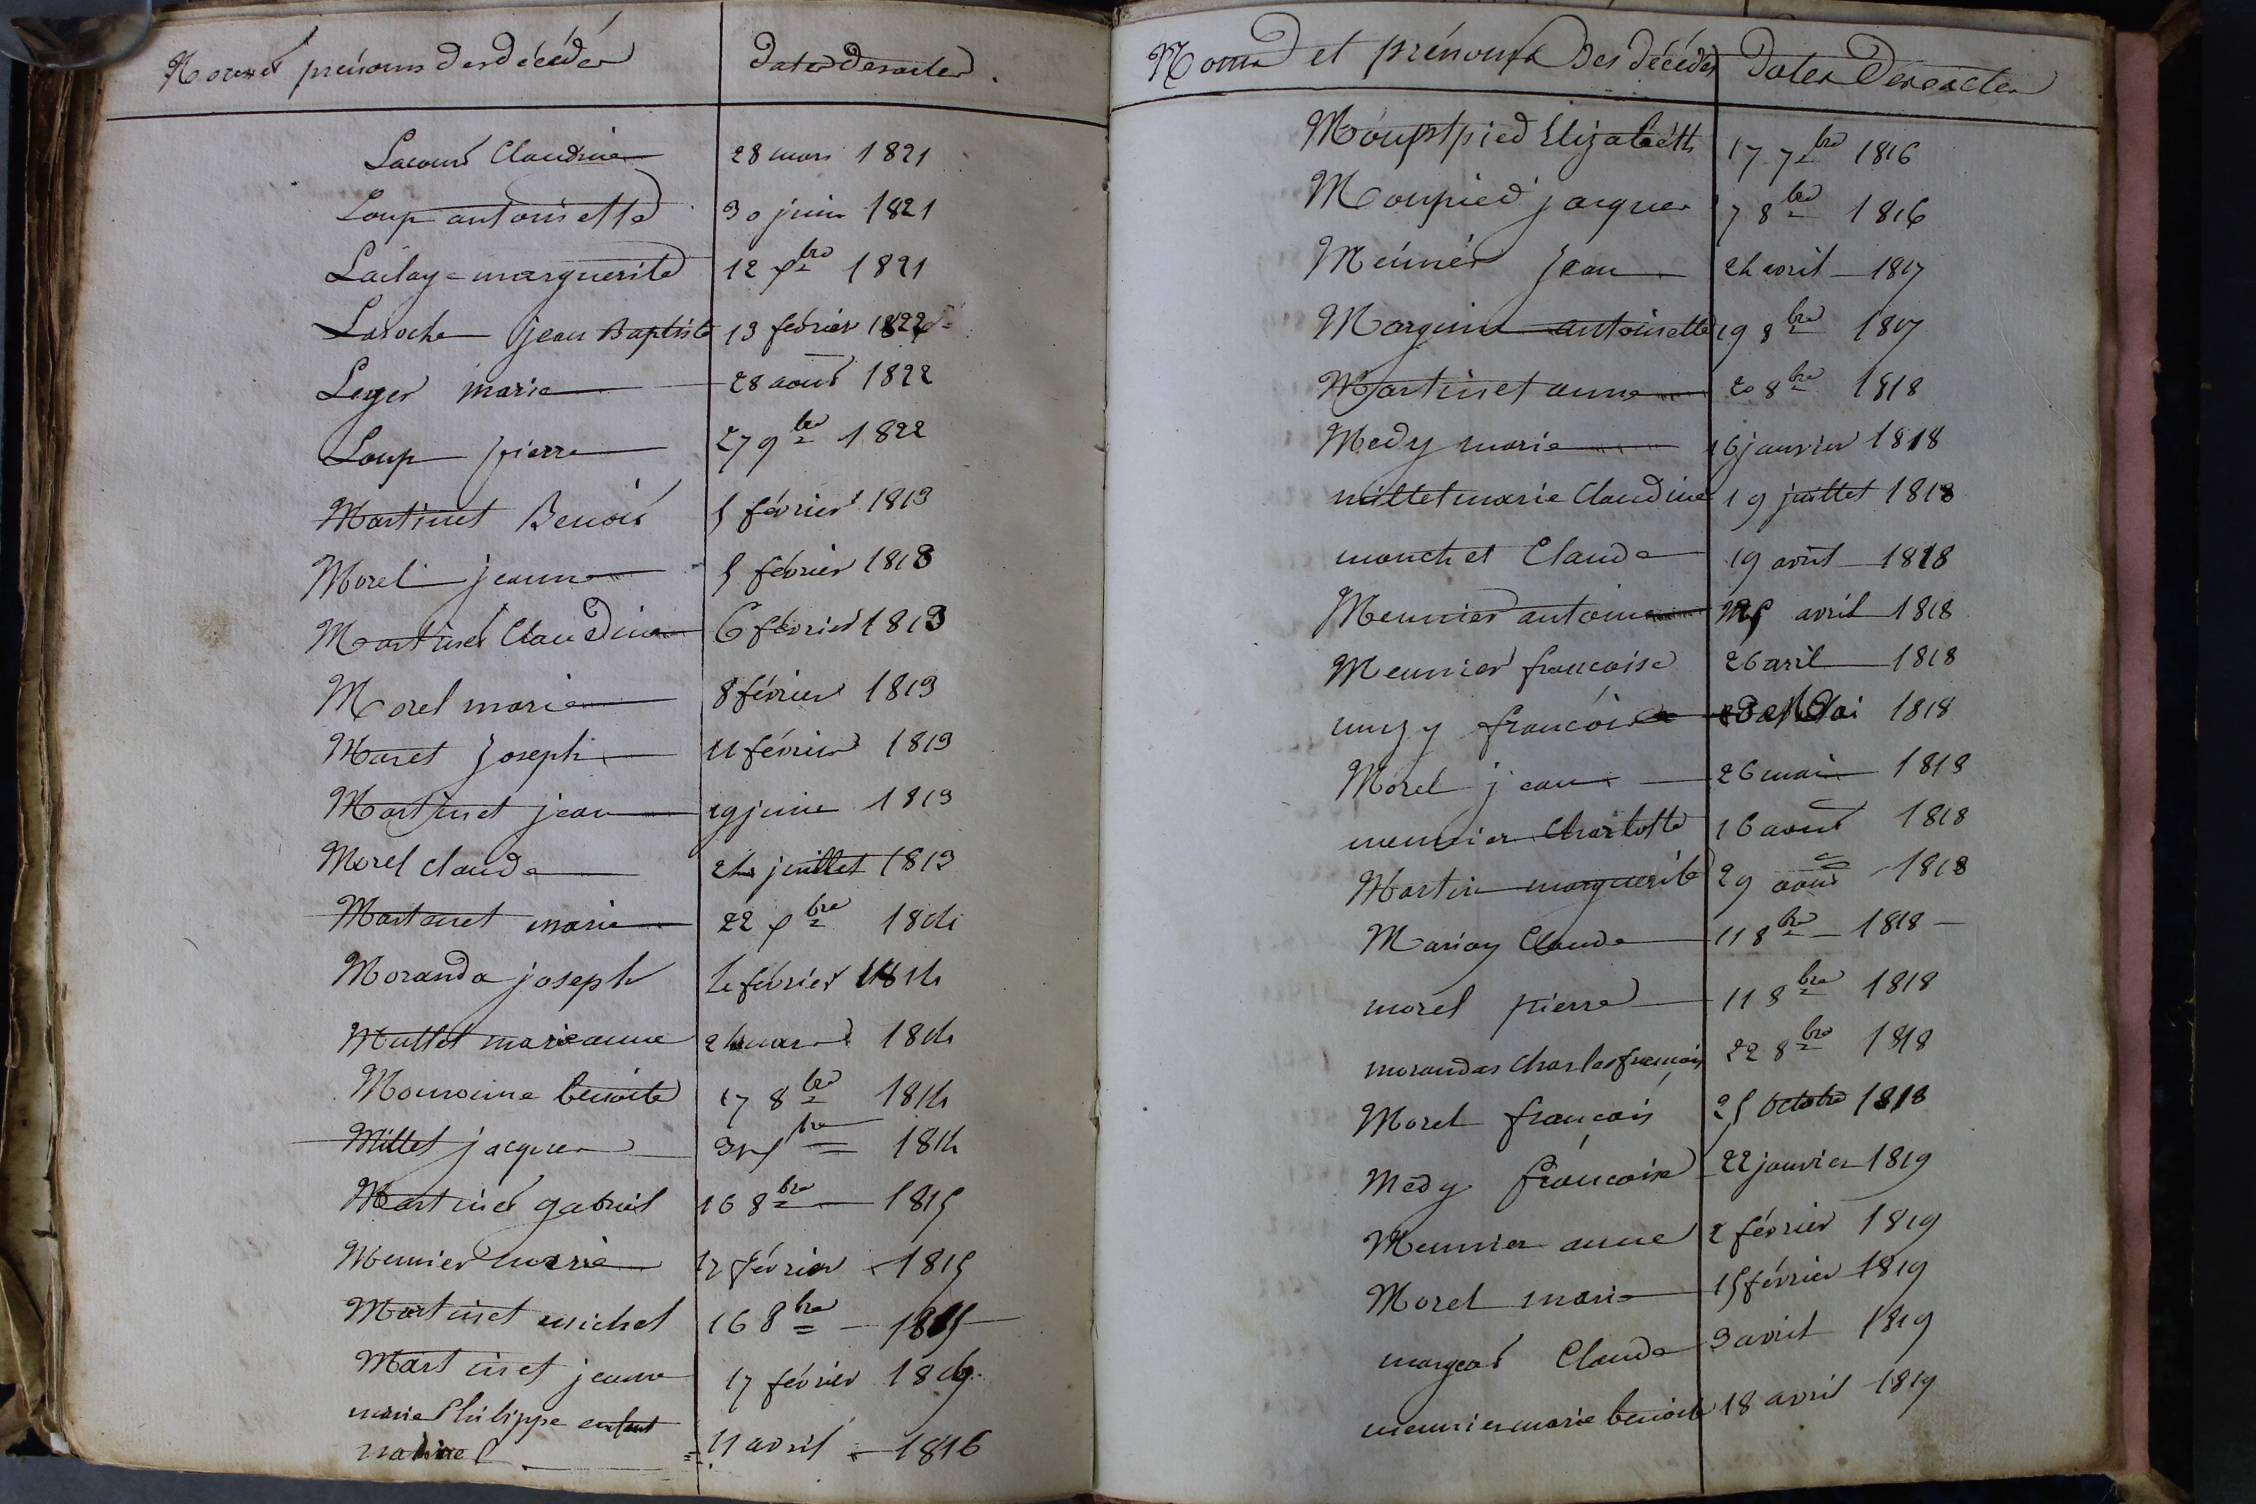 Noms et prénoms des décédés
dates des actes.
Lacour Claudine 28 mars 1821
Loup antoinette 30 juin 1821
Lailay = marguerite 12 Xbre 1821
Laroche jean Baptiste 13 février 1822
Leger marie 28 aout 1822
Loup pierre 27 9bre 1822
Martinet Benoit 5 février 1813
Morel jeanne 5 février 1813
Martinet Claudine 6 février 1813
Morel marie 8 février 1813
Maret Joseph 11 février 1813
Martinet jean 19 juin 1813
Morel Claude 24 juillet 1813
Martinet marie 22 Xbre 1814
Moranda joseph 4 février 1814
Millet marieanne mars 1814
benoite 17 8bre 1814
Millet jacques 1814
Martinet gabriel 16 8bre 1815
Meunier marie 12 février 1815
Martinet michel 16 8bre 1815
Martinet jeanne 17 février 1816
marie Philippe enfant
naturel 11 avril 1816
Noms et prénoms des décédés dates des actes
Moupspied Elizabeth 17 7bre 1816
Moupied jacques 7 8bre 1816
Meúnier Jean 24 avril 1817
Marguin antoinette 19 8bre 1817
Martinet anne 20 8bre 1818
Medy marie 16 janvier 1818
millet marie Claudine 19 juillet 1818
monchet Claude 19 avril 1818
Meunier antoine avril 1818
Meunier francoise 26 avril 1818
muzy Mai 1818
Morel jean 26 mai 1818
meunier Charlotte 16 aout 1818
Martin marguerite 29 aout 1818
Mariay Claude 11 8bre 1818
morel pierre 11 8bre 1818
morandas Charles françois 22 8bre 1818
Morel françois 25 Octobre 1818
Medy francoise 22 janvier 1819
Meunier anne 2 février 1819
Morel marie 15 février 1819
Claude 3 avril 1819
meunier marie benoite 18 avril 1819